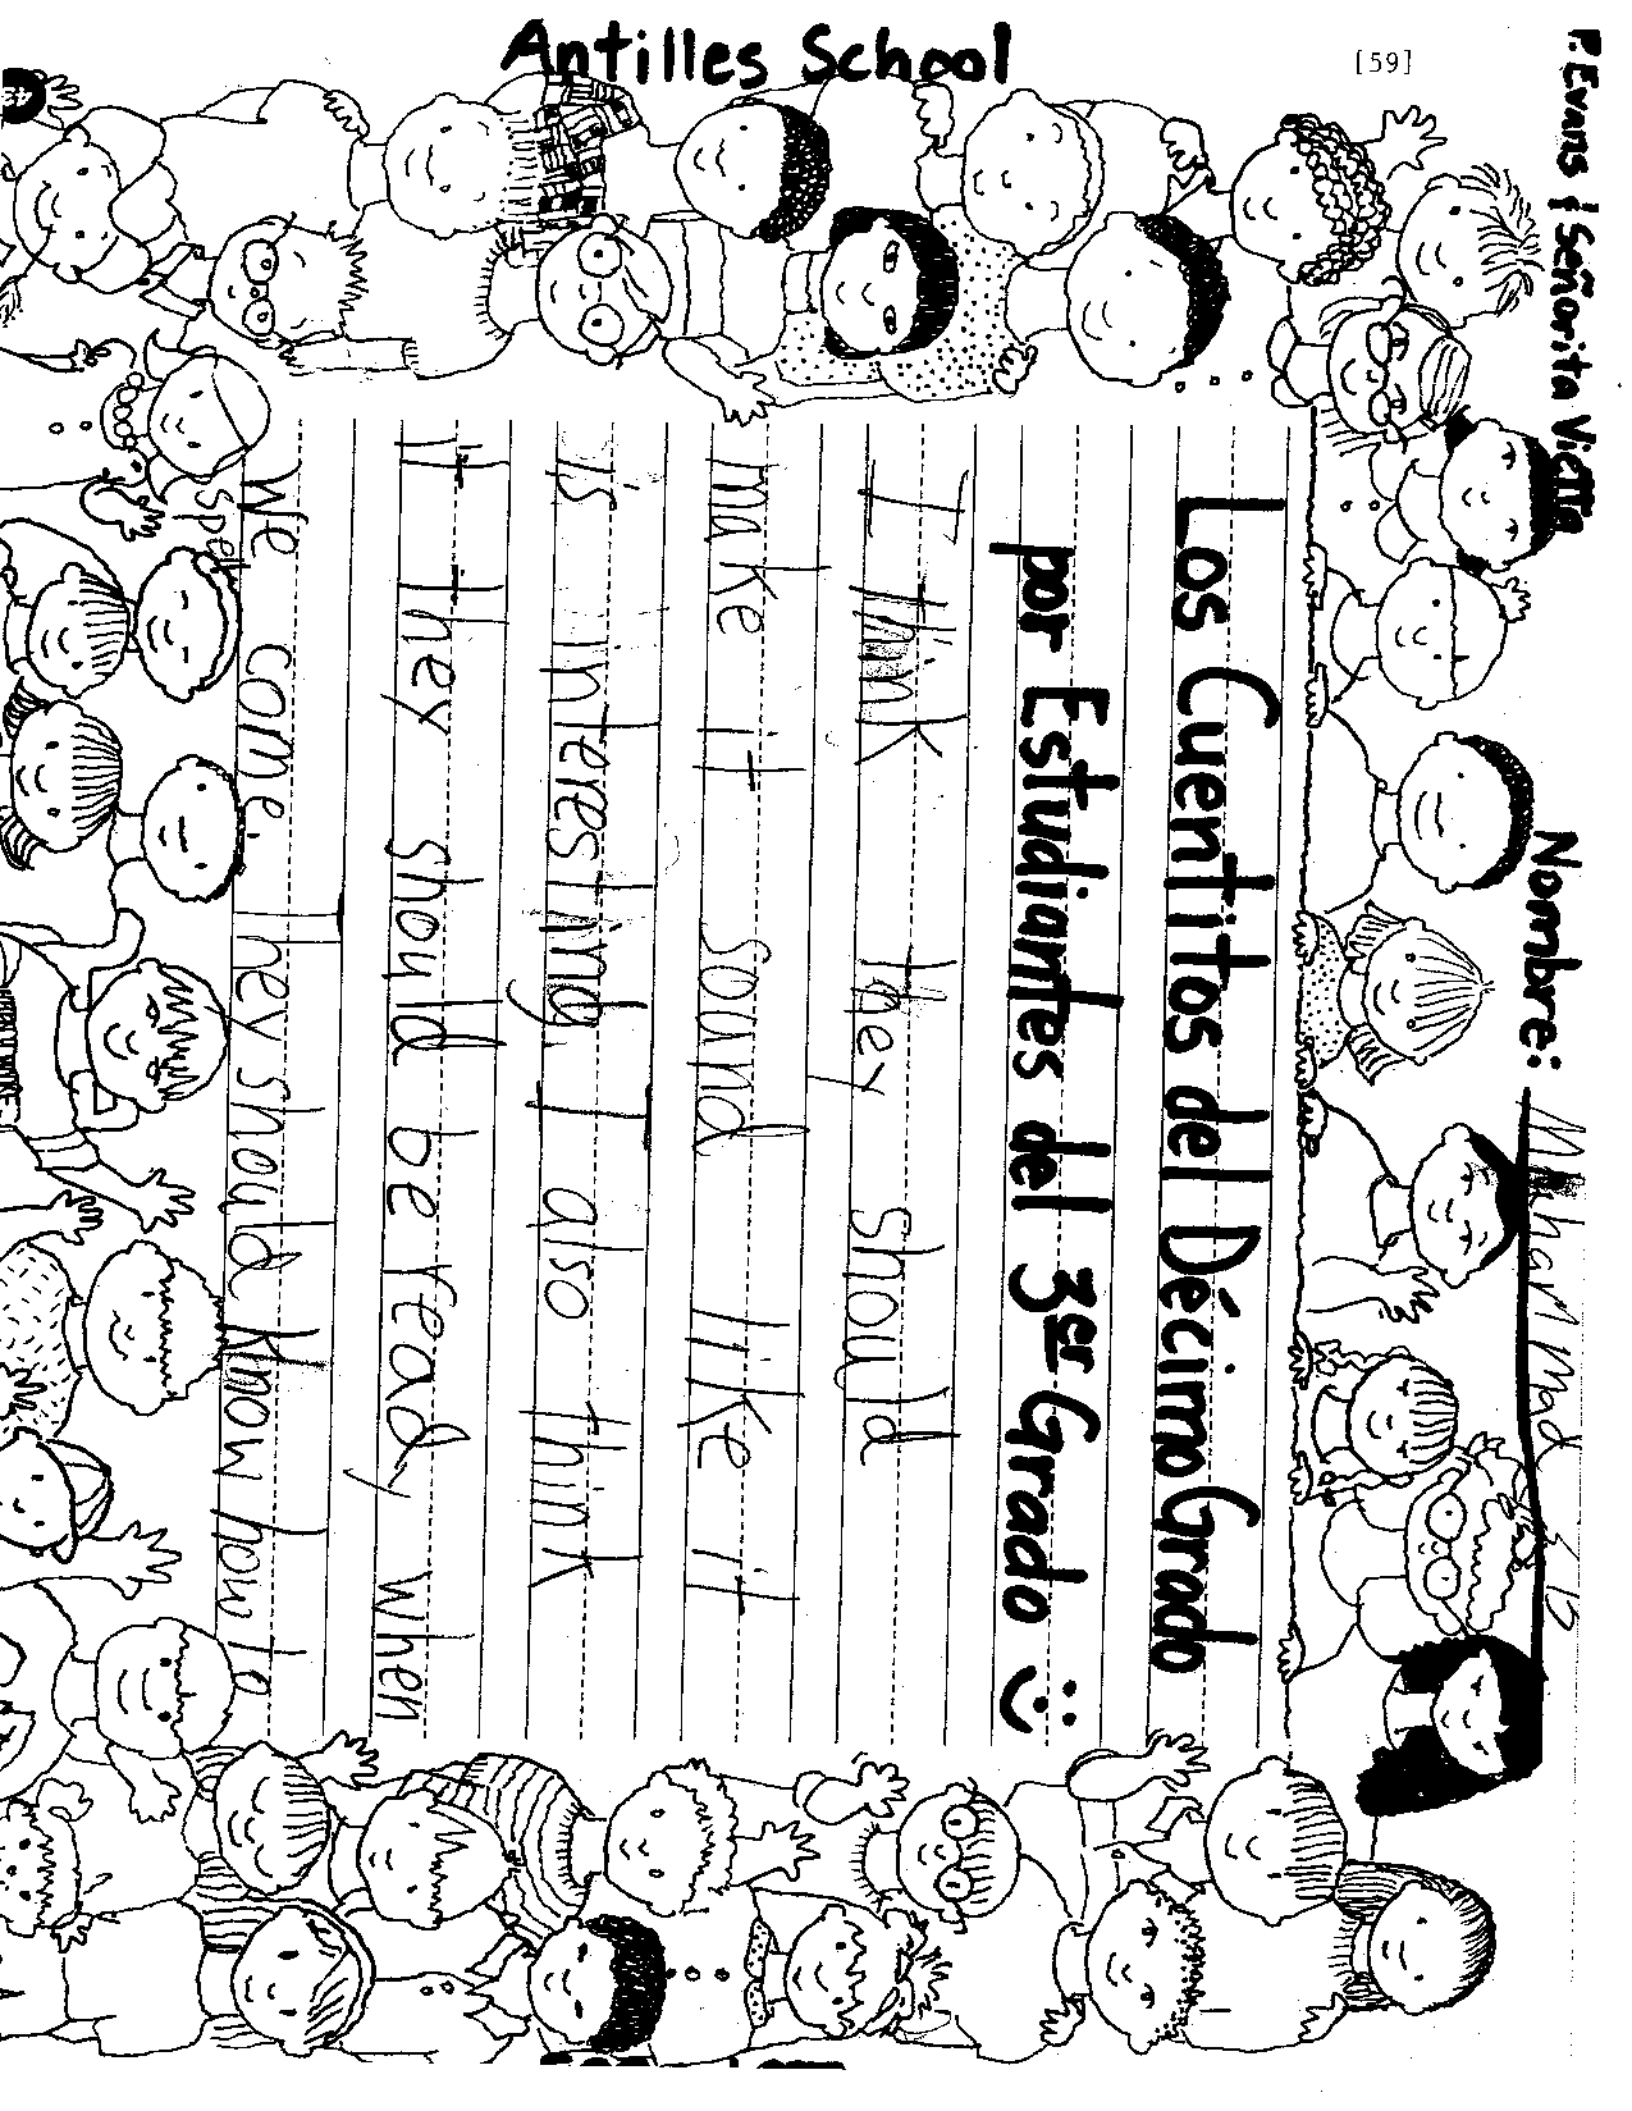 Antilles School
[59]
P. Evans & Señorita Vietta
Nombre:
Los Cuentitos del Décimo Grado
por Estudiantes del 3er Grado
I think they should
make it sound like it
is interesting. I also think
tt they should be ready when
we come. They should know how to
spell